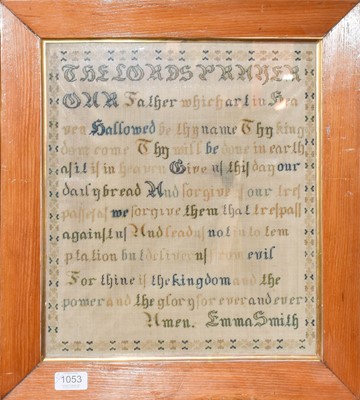 THE LORDS PRAYER
OUR Father which art in Hea
ven Hallowed be thy name Thy king
dom come Thy will be done in earth
as it is in heaven Give us this day our
daily bread And forgive us our tres
passes as we forgive them that trespass
against us And lead us not into tem
ptation but deliver us from evil
For thine is the kingdom and the
power and the glory for ever and ever
Amen. Emma Smith
1053